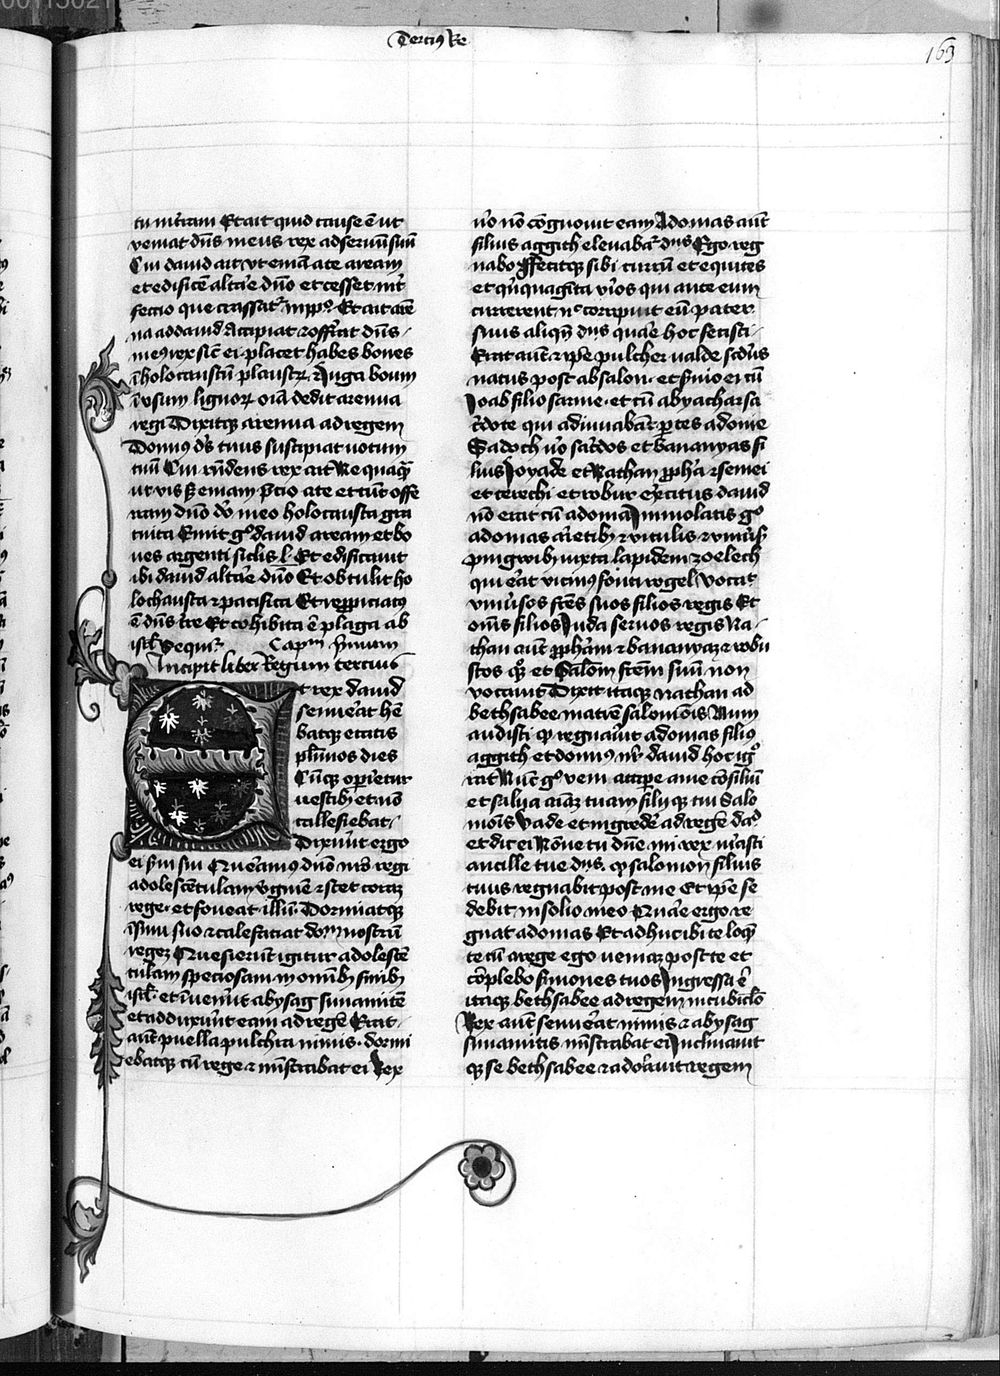 Tercius Re
163
tu in terram Et ait quid cause ē ut
veniat dn̄s meus rex ad servum suū
Cui david ait. Vt emā a te aream
et edificē altare dn̄o et cesset int͛
fectio que crassat͛ in pp̄lo. Et ait are
na ad david Accipiat ⁊ offerat dn̄s
meꝰ rex sic͛ ei placet habes boves
ī holocaustū plaustꝝ ⁊ iuga boum
ī usum lignoꝝ oīa dedit arenna
regi Dixitqꝫ arenna ad regem
Dominꝰ dꝰs tuus suscipiat votum
tuū Cui rn̄dens rex ait Nequaqꝫ
ut vis sꝫ emam p͛cio a te et nō offe
ram dn̄o do̅ meo holocausta gra
tuita Emit gͦ david aream et bo
ves argenti siclis l. Et edificavit
ibi david altare dn̄o Et obtulit ho
lochausta ⁊ pacifica Et repropiciatꝰ
ē dn̄s tre Et cohibita ē plaga ab
isrl̄ Sequit͛ Capm̄ Primum
Incipit liber Regum tercius
Et rex david
senuerat hēb
batqꝫ etatis
plurimos dies
Cūqꝫ operietur
vestibꝫ et nō
callefiebat.
Dixerūt ergo
ei s̄vi sui Queramꝰ dn̄o nr̄o regi
adolescētulam v͛ginē ⁊ stet coraꝫ
rege. et foveat illū. Dormiatqꝫ
ī sinu suo ⁊ calefaciat dom nostrū
regeꝫ Quesierūt igitur adolescē
tulam speciosam in omībꝫ finibꝫ
isrl̄. et īvenerūt abysag sunamitē
et adduxerūt eam ad regē Erat
autē puella pulchra nimis. dormi
ebatqꝫ cū rege ⁊ mīstrabat ei Rex
v͛o nō cōgnovit eam Adonias aut̄
filius aggith elevabat͛ dn̄s Ego reg
nabo Ffecitqꝫ sibi currū et equites
et qīnquagīta v͛ios qui ante eum
currerent nͨ corripuit eū pater
suus aliqn̄ dn̄s quare hoc fecisti
Erat aut̄ ⁊ ip̄e pulcher valde scd̄us
natus post absalon. et s͛mo ei cū
Joab filio sarvie. et cū abyachar sa
c͛dote qui adiuvabāt ꝑtes adonie
Sadoch v͛o sac͛dos et bananyas fi
lius Joyade et Nathan ꝓph̄a ⁊ semei
et cerechi et robur exercitus david
nō erat cū adonia Immolatis gͦ
adonias arietibꝫ ⁊ vitulis ⁊ univ͛sꝭ
pinguibꝫ iuxta lapidem zoelech
qui erat vicinꝰ fonti rogel. vocavit
univ͛sos frēs suos filios regis Et
om̄s filios Juda servos regis Na
than aut̄ ꝓph̄am ⁊ bananyaꝫ ⁊ robu
stos qꝫ et Salom̄ frēm suū non
vocavit Dixit itaqꝫ nathan ad
bethsabee matrē salomōis Num
audisti ꝙ regnav͛it adonias filiꝰ
aggith et dominꝰ nr̄ david hoc igͦ
rat Nūc gͦ veni accipe a me cōsiliū
et salva aīaꝫ tuam filiiqꝫ tui Salo
mōis Vade et ingrede ad regē david
et dic ei Nōne tu dn̄e mi rex iurasti
ancille tue dn̄s. ꝙ salomon filius
tuus regnabit post me Et ip̄e se
debit in solio meo Quare ergo re
gnat adonias Et adhuc ibi te loqꝫ
te cū rege ego veniaꝫ post te et
cōplebo s͛mones tuos Ingressa ē
itaqꝫ bethsabee ad regem in cubicl̄o
Rex aut̄ senuerat nimis ⁊ abysag
sunamitis mīstrabat ei Inclinavit
qꝫ se bethsabee ⁊ adoravit regem